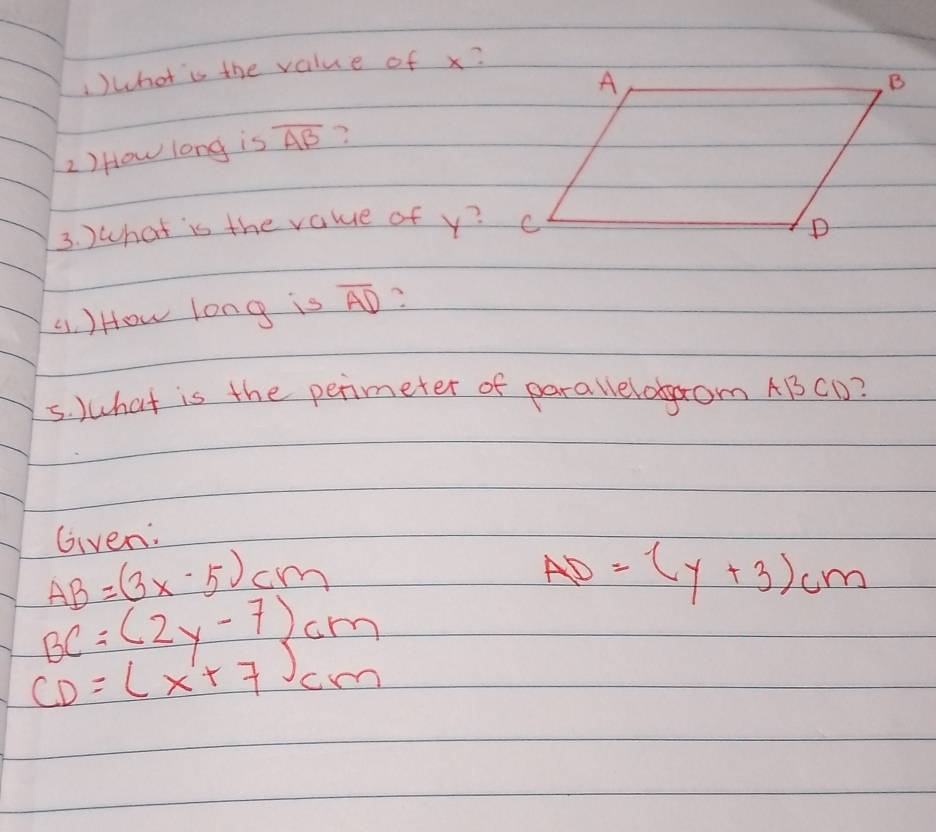 1.) What is the value of x?
A B
2.) How long is A̅B̅?
3.) What is the value of y? C D
4.) How long is A̅D̅?
5.) What is the perimeter of parallelogram ABCD?
Given:
AB = (3x - 5) cm AD = (y + 3) cm
BC = (2y - 7) cm
CD = (x + 7) cm